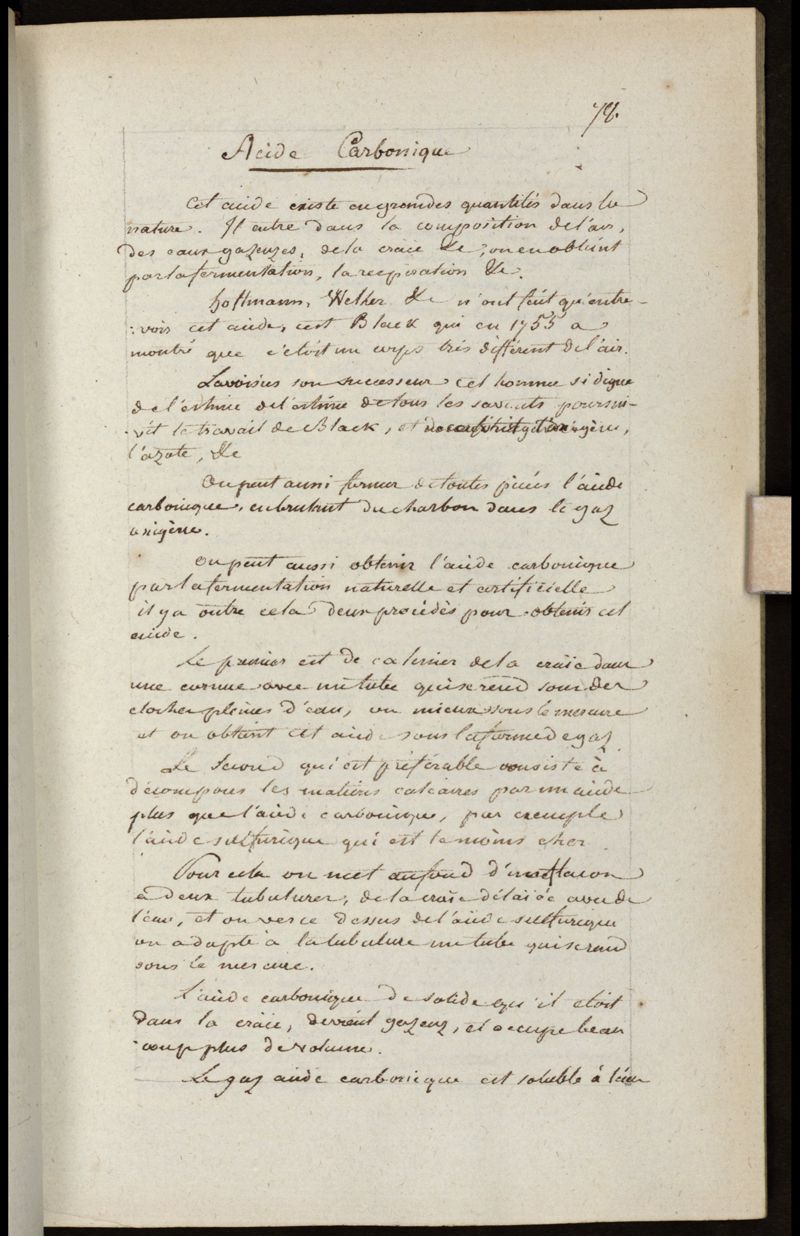 78.
Acide Carbonique
Cet acide existe en grandes quantités dans la
nature. Il entre dans la composition de l'air,
des eaux gazeuzes, de la craie &c, on en obtient
par la fermentation, la respiration &c.
hoffmann, Welter &c n'ont fait qu'entre-
voir cet acide, c'est Black qui en 1755 a
montré que c'etoit un corps très différent de l'air.
Lavoisier son successeur cet homme si digne
de l'estime de l'estime de tous les savents poursui-
vit le travail de Black, et
l'azote, &c
On peut aussi former de toutes pièces l'acide
carbonique, en brulant du charbon dans le gaz
oxigène.
On peut aussi obtenir l'acide carbonique
par la fermentation naturelle et artificielle
il y a outre cela deux procédés pour obtenir cet
acide.
Le premier est de calciner de la craie dans
une cornue avec un tube qui se rend sous des
cloches pleines d'eau, ou mieux sous le mercure
et on obtient cet acide sous la forme de gaz
Le Second qui est préférable consiste à
décomposer les matières calcaires par un acide
plus que l'acide carbonique, par exemple
l'acide sulfurique qui est le moins cher
Pour cela on met au fond d'un flacon
à deux tubulures, de la craie délaiée avec de
l'eau, et on verse dessus de l'acide sulfurique
on adapte à la tubulure un tube qui se rend
sous le mercure.
L'acide carbonique de solide qu'il etoit
dans la craie, devient gazeux, et occupe beau
coup plus de volume.
Le gaz acide carbonique est soluble à l'eau